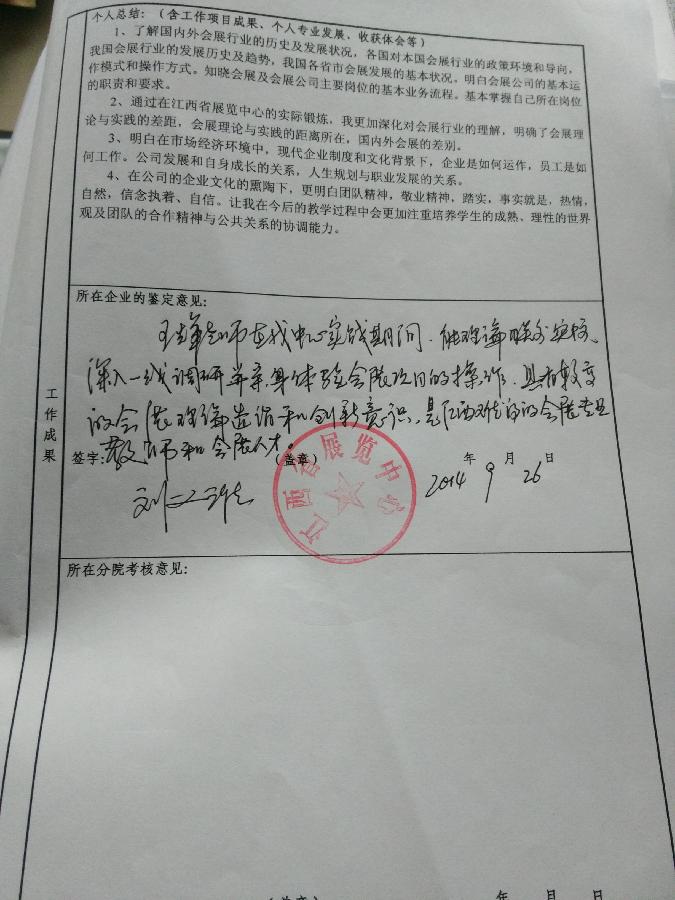 个人总结：（含工作项目成果、个人专业发展、收获体会等）
1、了解国内外会展行业的历史及发展状况，各国对本国会展行业的政策环境和导向，
我国会展行业的发展历史及趋势，我国各省市会展发展的基本状况。明白会展公司的基本运
作模式和操作方式。知晓会展及会展公司主要岗位的基本业务流程。基本掌握自己所在岗位
的职责和要求。
2、通过在江西省展览中心的实际锻炼，我更加深化对会展行业的理解，明确了会展理
论与实践的差距，会展理论与实践的距离所在，国内外会展的差别。
3、明白在市场经济环境中，现代企业制度和文化背景下，企业是如何运作，员工是如
何工作。公司发展和自身成长的关系，人生规划与职业发展的关系。
4、在公司的企业文化的熏陶下，更明白团队精神，敬业精神，踏实，事实就是，热情，
自然，信念执着、自信。让我在今后的教学过程中会更加注重培养学生的成熟、理性的世界
观及团队的合作精神与公共关系的协调能力。
工作成果
所在企业的鉴定意见：
老师在我中心实践期间，能理论联系实际，
深入一线调研并亲身体验会展项目的操作，具有较高
的会展理论造诣和创新意识，是江西难得的会展专业
教师和会展人才。
签字：
（盖章）
年 月 日
2014 9 26
江西省展览中心
所在分院考核意见：
（盖章）
年 月 日